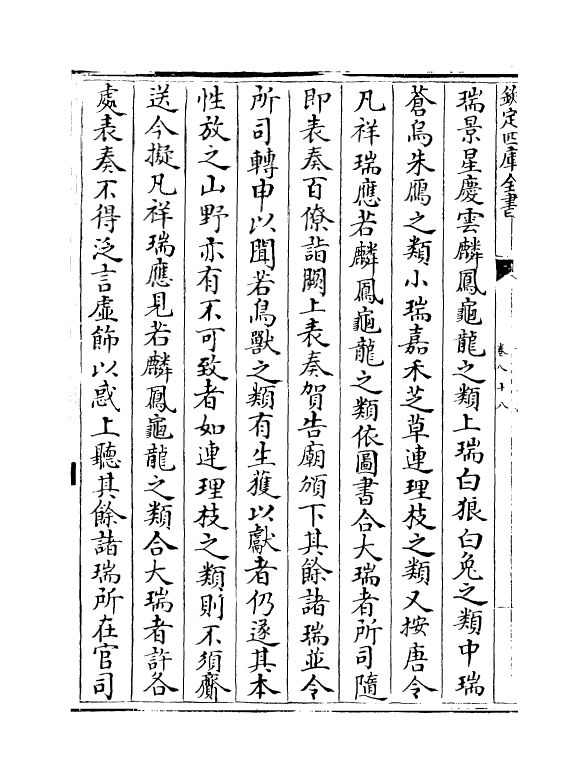 欽定四庫全書
卷八十八
瑞景星慶雲麟鳳龜龍之類上瑞白狼白兔之類中瑞
蒼烏朱鴈之類小瑞嘉禾芝草連理枝之類又按唐令
凡祥瑞應若麟鳳龜龍之類依圖書合大瑞者所司隨
即表奏百僚詣闕上表奏賀告廟頒下其餘諸瑞並令
所司轉申以聞若鳥獸之類有生獲以獻者仍遂其本
性放之山野亦有不可致者如連理枝之類則不須齎
送今擬凡祥瑞應見若麟鳳龜龍之類合大瑞者許各
處表奏不得泛言虛飾以惑上聽其餘諸瑞所在官司